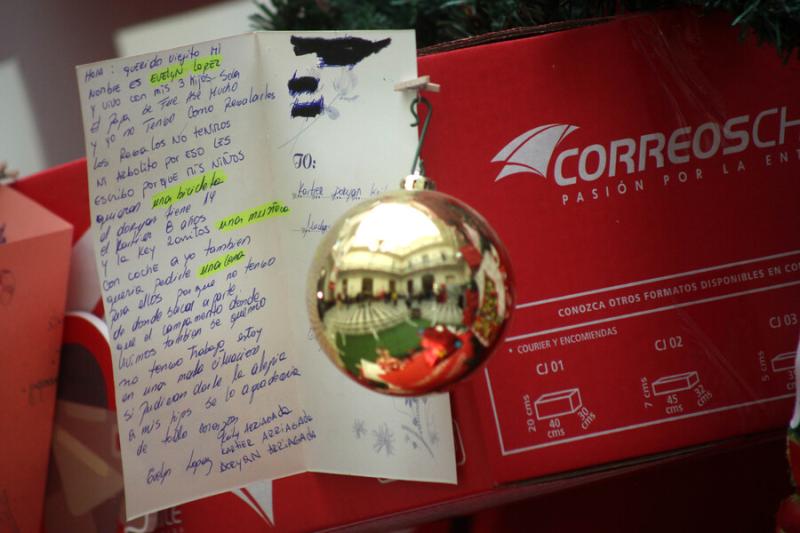 Hola: querido viejito mi
nombre es EVELYN LOPEZ
y vivo con mis 3 hijos sola
el papa se fue ase mucho
y yo no tengo como regalarles
los regalos no tenimos
ni arbolito por eso les
escribo porque mis niños
quieren una bicicleta
el doryan tiene 14
el Kartier 8 años
y la Key 2 añitos una muñeca
con coche a yo tambien
queria pedirle una cena
para ellos porque no tengo
de donde sacar a parte
que el campamento donde
vivimos tambien se quemo
no tengo trabajo estoy
en una mala situacion
si pudieran darle la alegria
a mis hijos se lo agradeceria
de todo corazon
Evelyn Lopez Key ARRIAGADA
KARTIER ARRIAGADA
DORYAN ARRIAGADA
TO:
Kartier Doryan
CORREOSCH
PASIÓN POR LA ENT
CONOZCA OTROS FORMATOS DISPONIBLES EN CO
* COURIER Y ENCOMIENDAS
CJ 01
20 cms
40 cms
30 cms
CJ 02
7 cms
45 cms
32 cms
CJ 03
5 cms